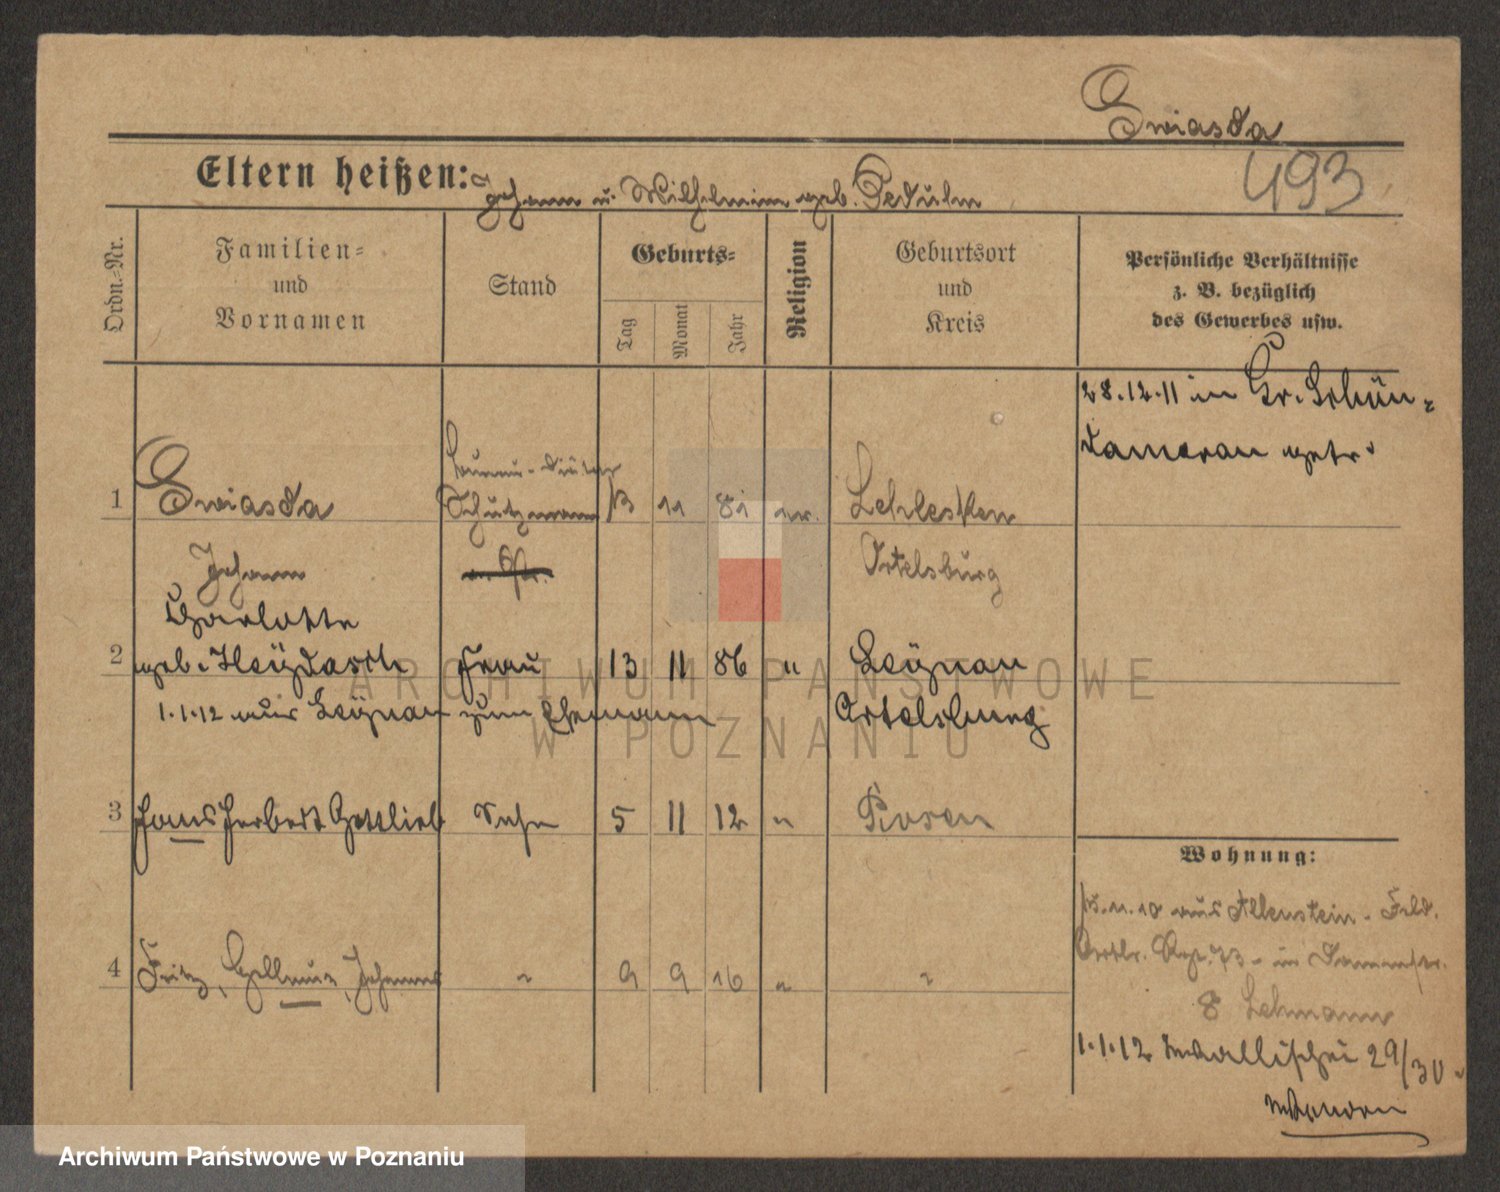 Gwiasda
493
Eltern heißen: Johann u. Wilhelmine geb. Pedulm
Ordn.-Nr.
Familien-
und
Vornamen
Stand
Geburts-
Tag
Monat
Jahr
Religion
Geburtsort
und
Kreis
Persönliche Verhältnisse
z. B. bezüglich
des Gewerbes usw.
28.12.11 in Gr. Schön-
damerau getr.
1 Gwiasda Schutzmann 13 11 81 ev. Lehlesken
Johann Ortelsburg
Charlotte
2 geb. Heydasch Frau 13 11 86 " Leynau
1.1.12 aus Leynau zum Ehemann Ortelsburg
3 Hans Herbert Gottlieb Sohn 5 11 12 " Posen
4 Fritz, Hellmut, Johannes " 9 9 16 " "
Wohnung:
15.11.10 aus Allenstein. Feld.
Artl. Rgt. 73 - in
8 Lehmann
1.1.12 Wallischei 29/30
ARCHIWUM PAŃSTWOWE
W POZNANIU
Archiwum Państwowe w Poznaniu